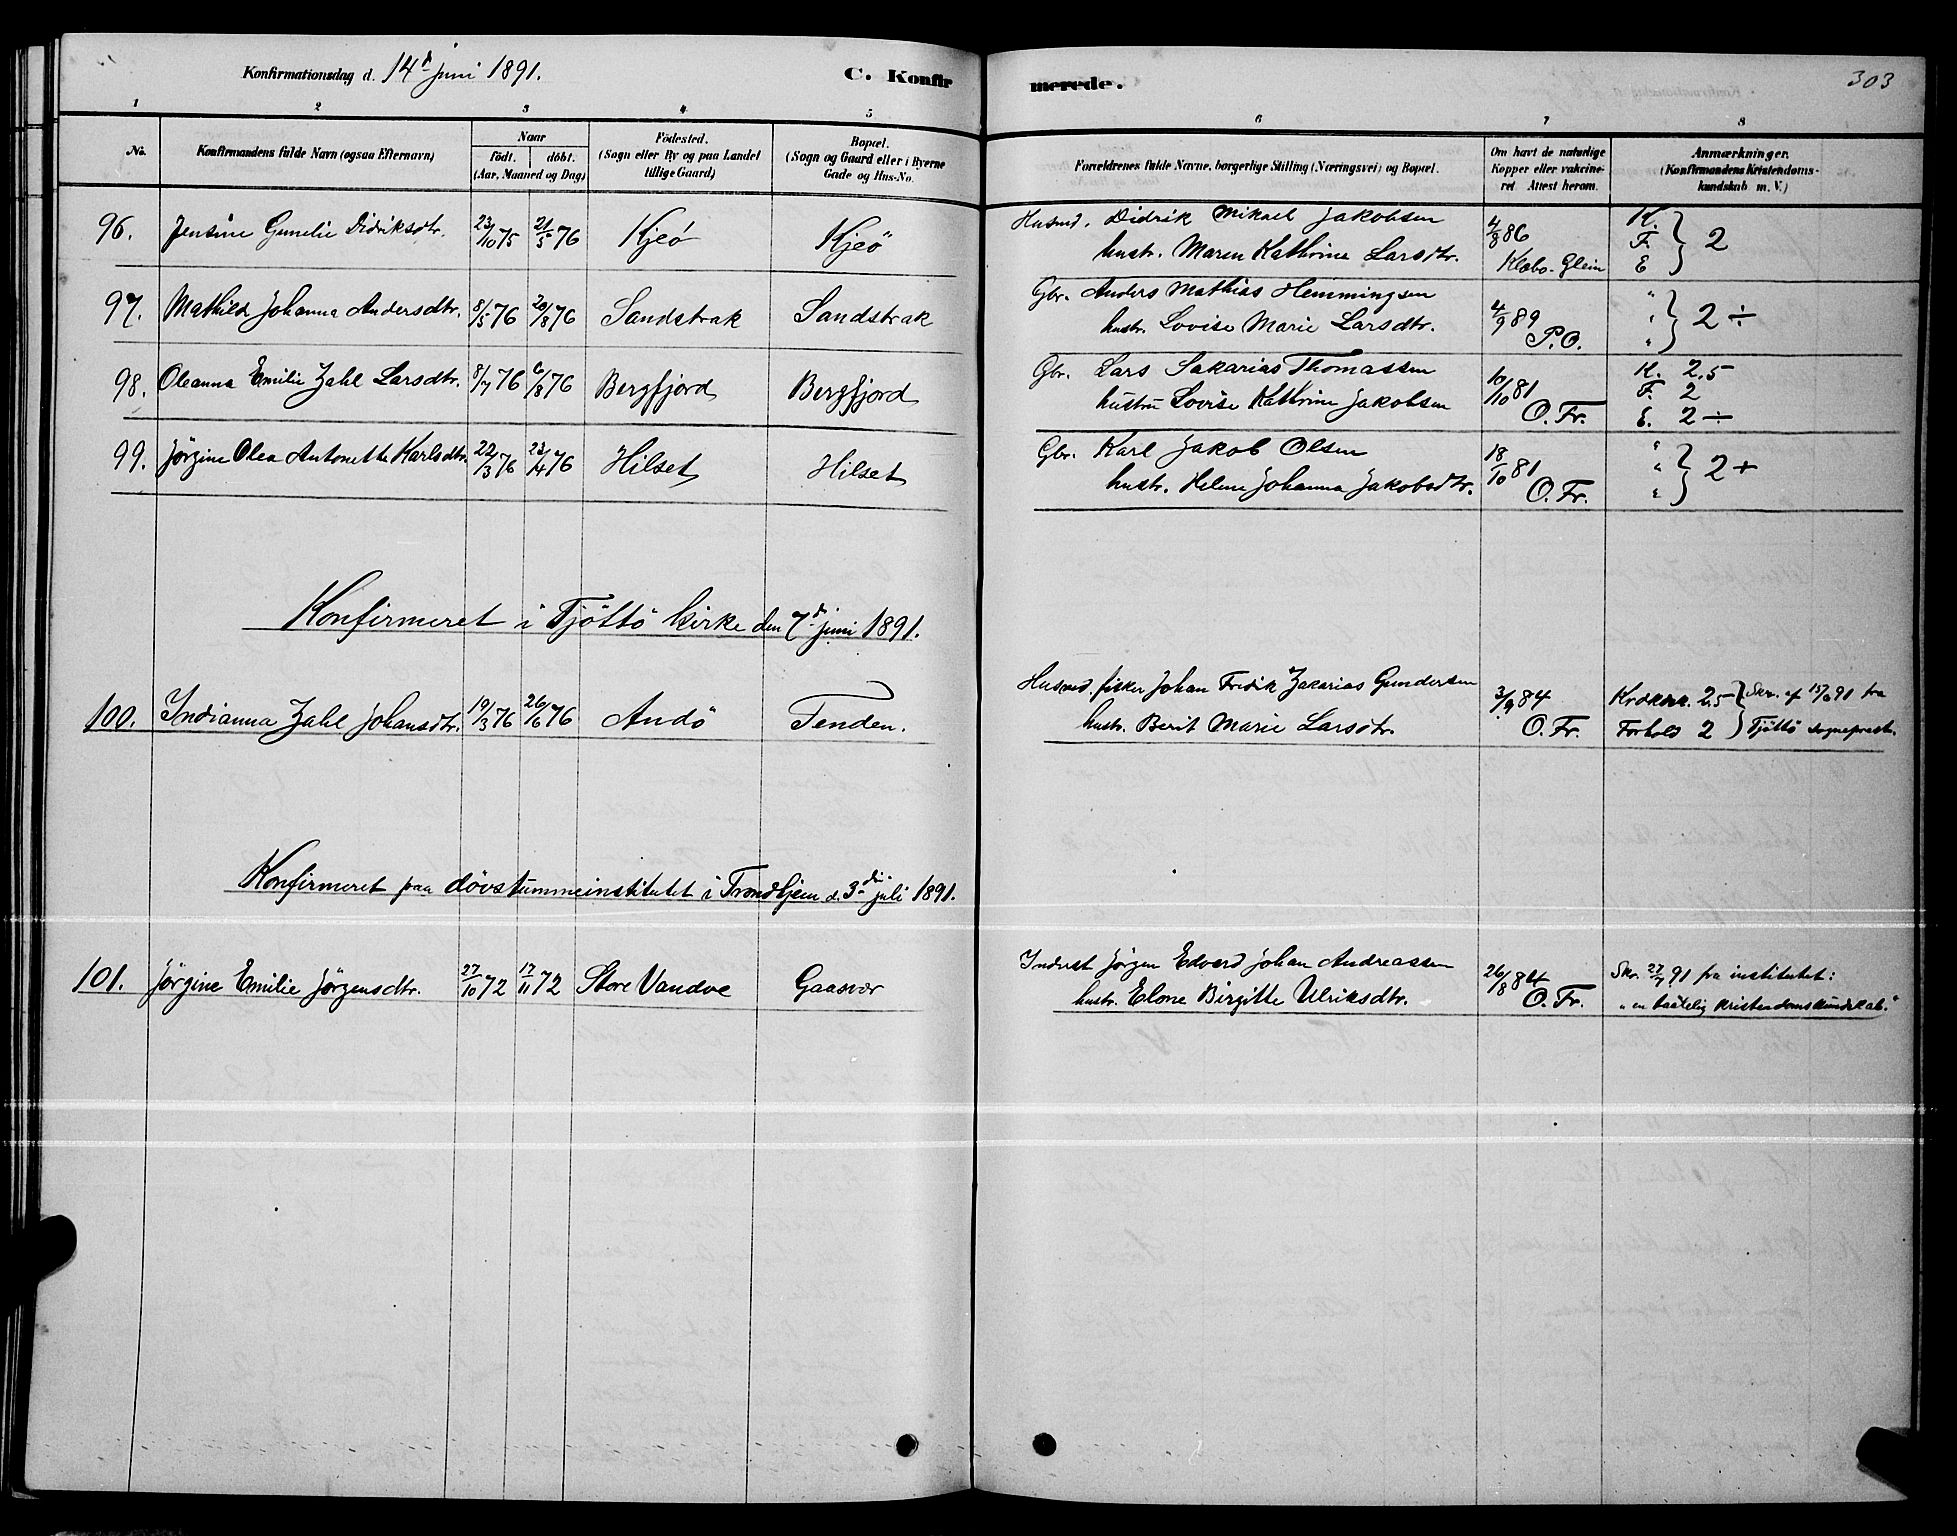 Konfirmationsdag d. 14d juni 1891.
C. Konfirmerede.
303
1 2 3 4 5 6 7 8
No.
Konfirmandens fulde Navn (ogsaa Efternavn)
Naar
født. døbt.
(Aar, Maaned og Dag)
Fødested.
(Sogn eller By og paa Landet
tillige Gaard)
Bopæl.
(Sogn og Gaard eller i Byerne
Gade og Hus-No.
Forældrenes fulde Navne, borgerlige Stilling (Næringsvei) og Bopæl.
Om havt de naturlige
Kopper eller vakcine-
ret. Attest herom.
Anmærkninger.
(Konfirmandens Kristendoms-
kundskab m. V.)
96. Jensine Gunelie Didriksdtr. 23/10 75 21/5 76 Kjeö Kjeö Husmd. Didrik Mikael Jakobsen 4/8 86 K.
hustr. Maren Kathrine Larsdtr. Klæbo-Glein F. } 2
E
97. Mathilde Johanna Andersdtr. 8/5 76 20/8 76 Sandstrak Sandstrak Gbr. Anders Mathias Hemmingsen 4/9 89 " } 2 ÷
hustr. Lovise Marie Larsdtr. P.O.
98. Oleanna Emilie Zahl Larsdtr. 8/7 76 6/8 76 Bergfjord Bergfjord Gbr. Lars Sakarias Thomassen 10/10 81 K. 2.5
hustru Lovise Kathrine Jakobsen O. Fr. F. 2
E. 2 ÷
99. Jørgine Olea Antonette Karlsdtr. 22/3 76 23/4 76 Hilset Hilset Gbr. Karl Jakob Olsen 18/10 81 " } 2 +
hustr. Helene Johanna Jakobsdtr. O. Fr.
Konfirmeret i Tjöttö kirke den 7d juni 1891.
100. Indianna Zahl Johansdtr. 19/3 76 26/6 76 Andö Tenden. Husmd. fisker Johan Fredik Zakarias Gundersen 3/9 84 Krdksk. 2.5 } Skr. af 15/6 91 fra
hustr. Berit Marie Larsdtr. O. Fr. Forhold 2 } Tjöttö sogneprest.
Konfirmeret paa døvstummeinstitutet i Trondhjem d. 3die juli 1891.
101. Jørgine Emilie Jørgensdtr. 27/10 72 17/11 72 Store Vandve Gaasvær Inderst Jørgen Edvard Johan Andreassen 26/8 84 Skr. 27/7 91 fra institutet:
hustr. Elone Birgitte Ulriksdtr. O. Fr. "en taalelig kristendomskundskab."